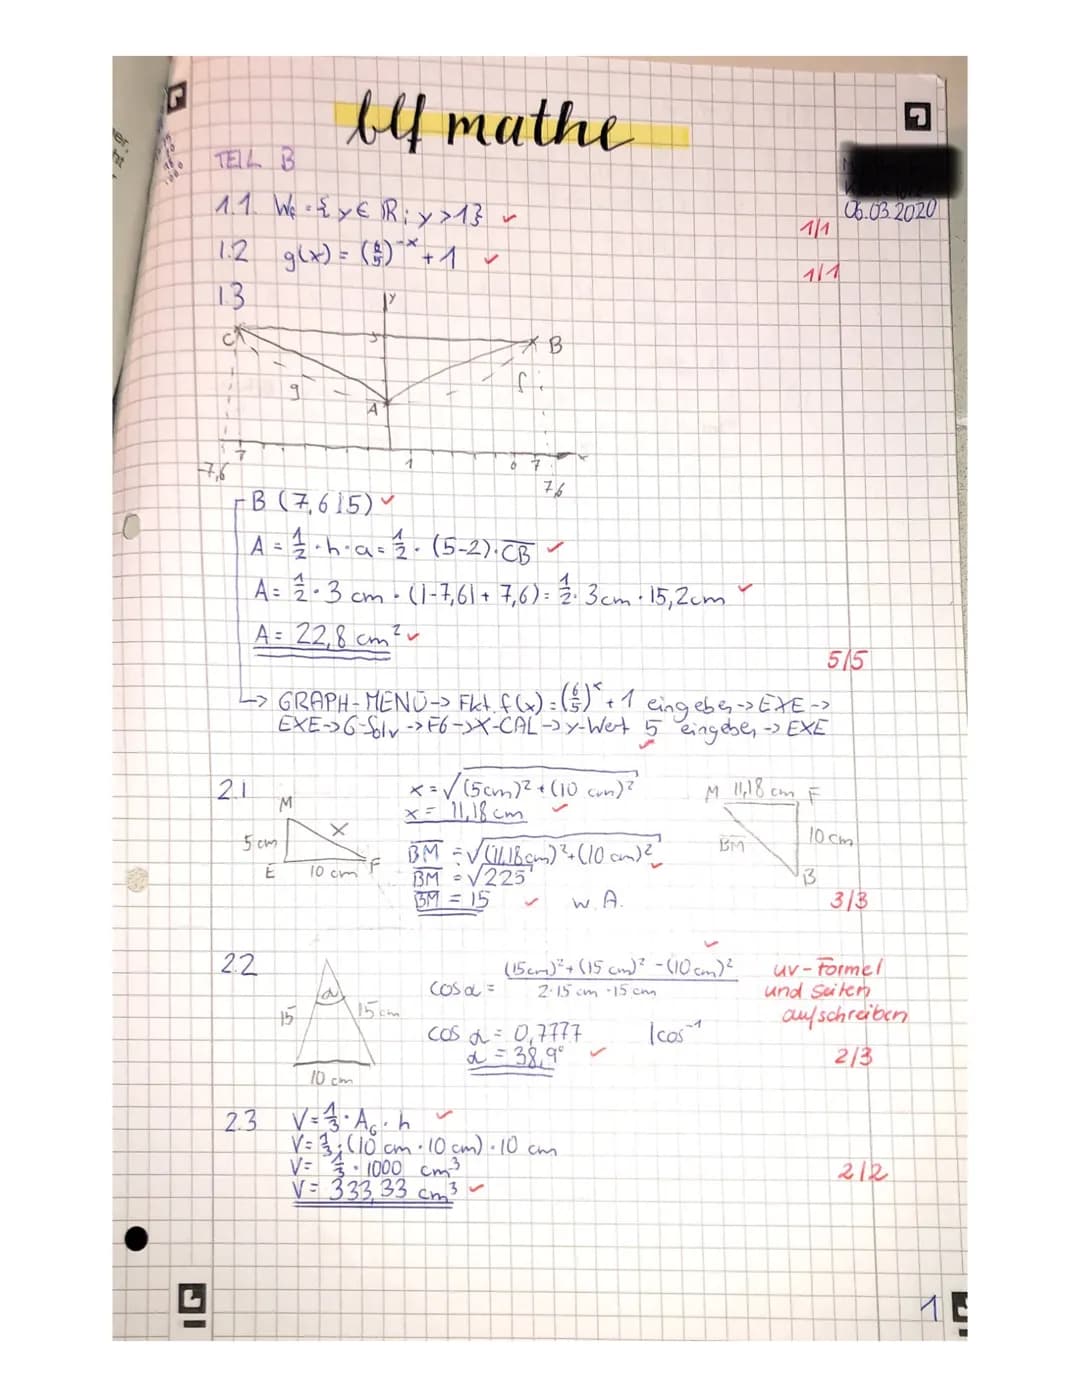 blf mathe
TEIL B
06.03.2020
1.1. Wf = { y ∈ ℝ; y > 1 } ✓
1/1
1.2 g(x) = (6/5)^-x + 1 ✓
1/1
1.3
y
C
5
B
g
f
A
7
1
6 7
x
-7,6
7,6
B (7,6|5) ✓
A = 1/2 · h · a = 1/2 · (5-2) · C̅B̅ ✓
A = 1/2 · 3 cm · (|-7,6| + 7,6) = 1/2 · 3cm · 15,2cm ✓
A = 22,8 cm² ✓
5/5
→ GRAPH-MENÜ → Fkt. f(x) = (6/5)^x + 1 eingeben → EXE →
EXE → G-Solv → F6 → X-CAL → y-Wert 5 eingeben → EXE
✓
2.1
M
5 cm
x
E
10 cm
F
x = √((5cm)² + (10 cm)²)
x = 11,18 cm ✓
B̅M̅ = √((11,18cm)² + (10 cm)²) ✓
B̅M̅ = √225
B̅M̅ = 15 ✓ w.A.
M 11,18 cm F
B̅M̅
10 cm
B
3/3
2.2
α
15
15 cm
10 cm
✓
cos α = ((15cm)² + (15 cm)² - (10cm)²) / (2 · 15 cm · 15 cm)
cos α = 0,7777 |cos⁻¹
α = 38,9° ✓
uv-Formel
und Seiten
aufschreiben
2/3
2.3 V = 1/3 · A_G · h ✓
V = 1/3 · (10 cm · 10 cm) · 10 cm
V = 1/3 · 1000 cm³
V = 333,33 cm³ ✓
2/2
1